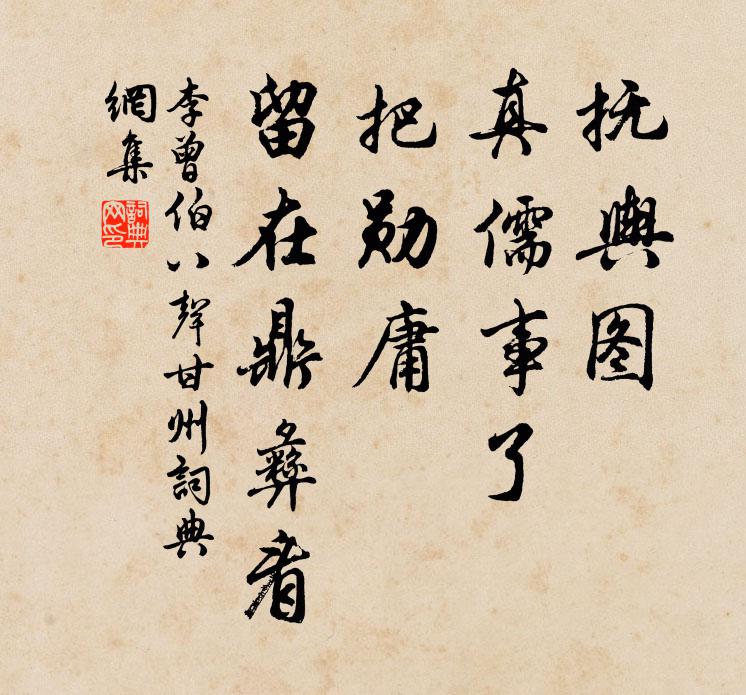 抚舆图
真儒事了
把勋庸
留在鼎彝看
李曾伯八聲甘州詞典
網集
詞典
网印